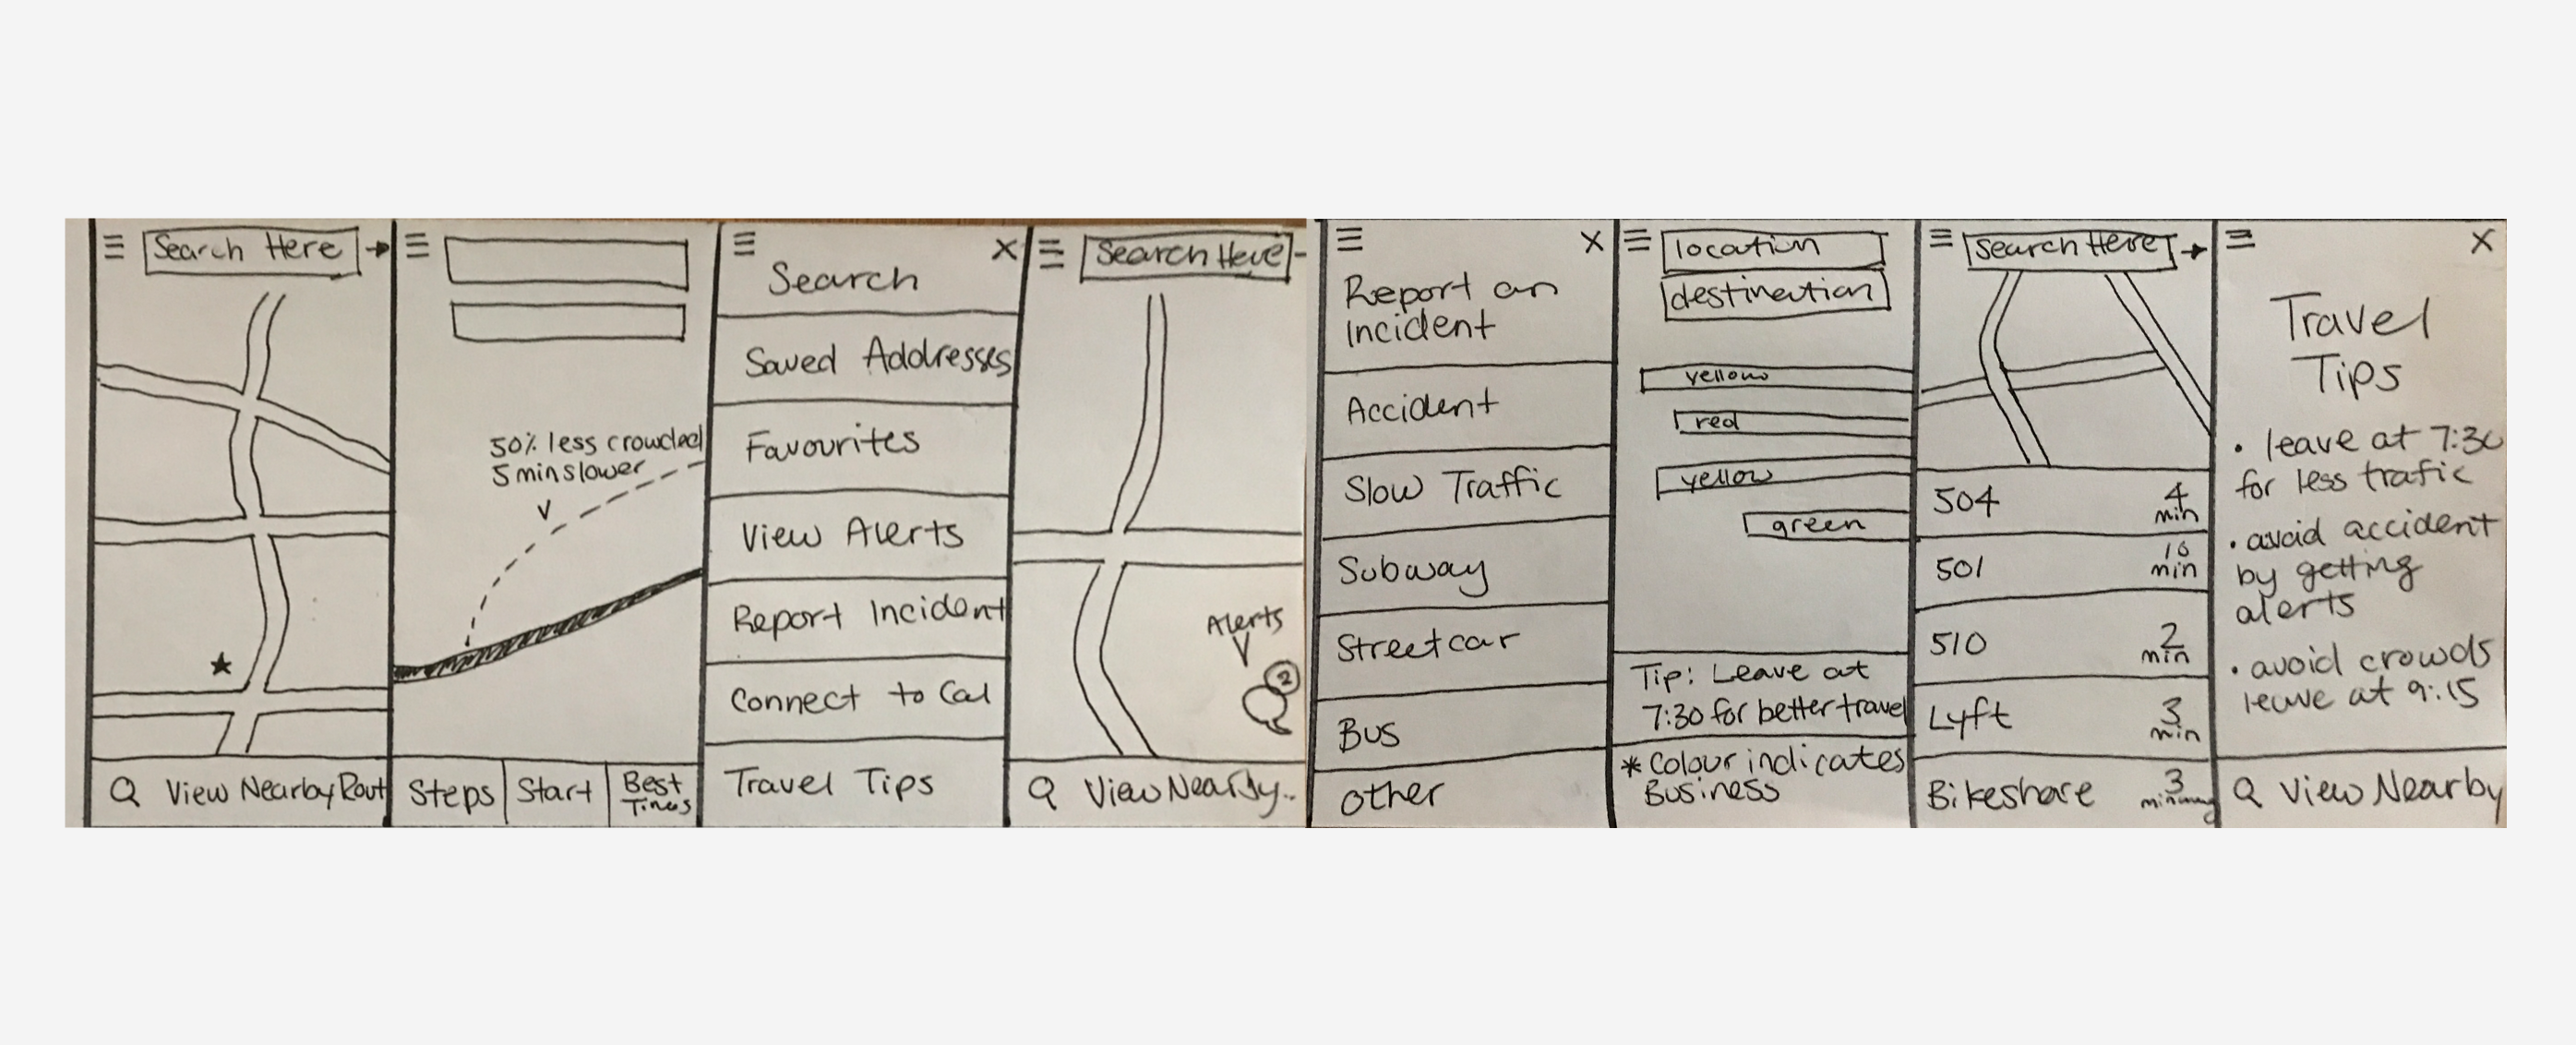 Search Here
View Nearby Rout
50% less crowded
5 min slower
Steps
Start
Best
Times
Search
Saved Addresses
Favourites
View Alerts
Report Incident
Connect to Cal
Travel Tips
Search Here
Alerts
2
View Nearby..
Report an
Incident
Accident
Slow Traffic
Subway
Streetcar
Bus
Other
location
destination
yellow
red
yellow
green
Tip: Leave at
7:30 for better travel
* Colour indicates
Business
Search Here
504 4 min
501 10 min
510 2 min
Lyft 3 min
Bikeshare 3 min
Travel
Tips
• leave at 7:30
for less trafic
• avoid accident
by getting
alerts
• avoid crowds
leave at 9:15
View Nearby